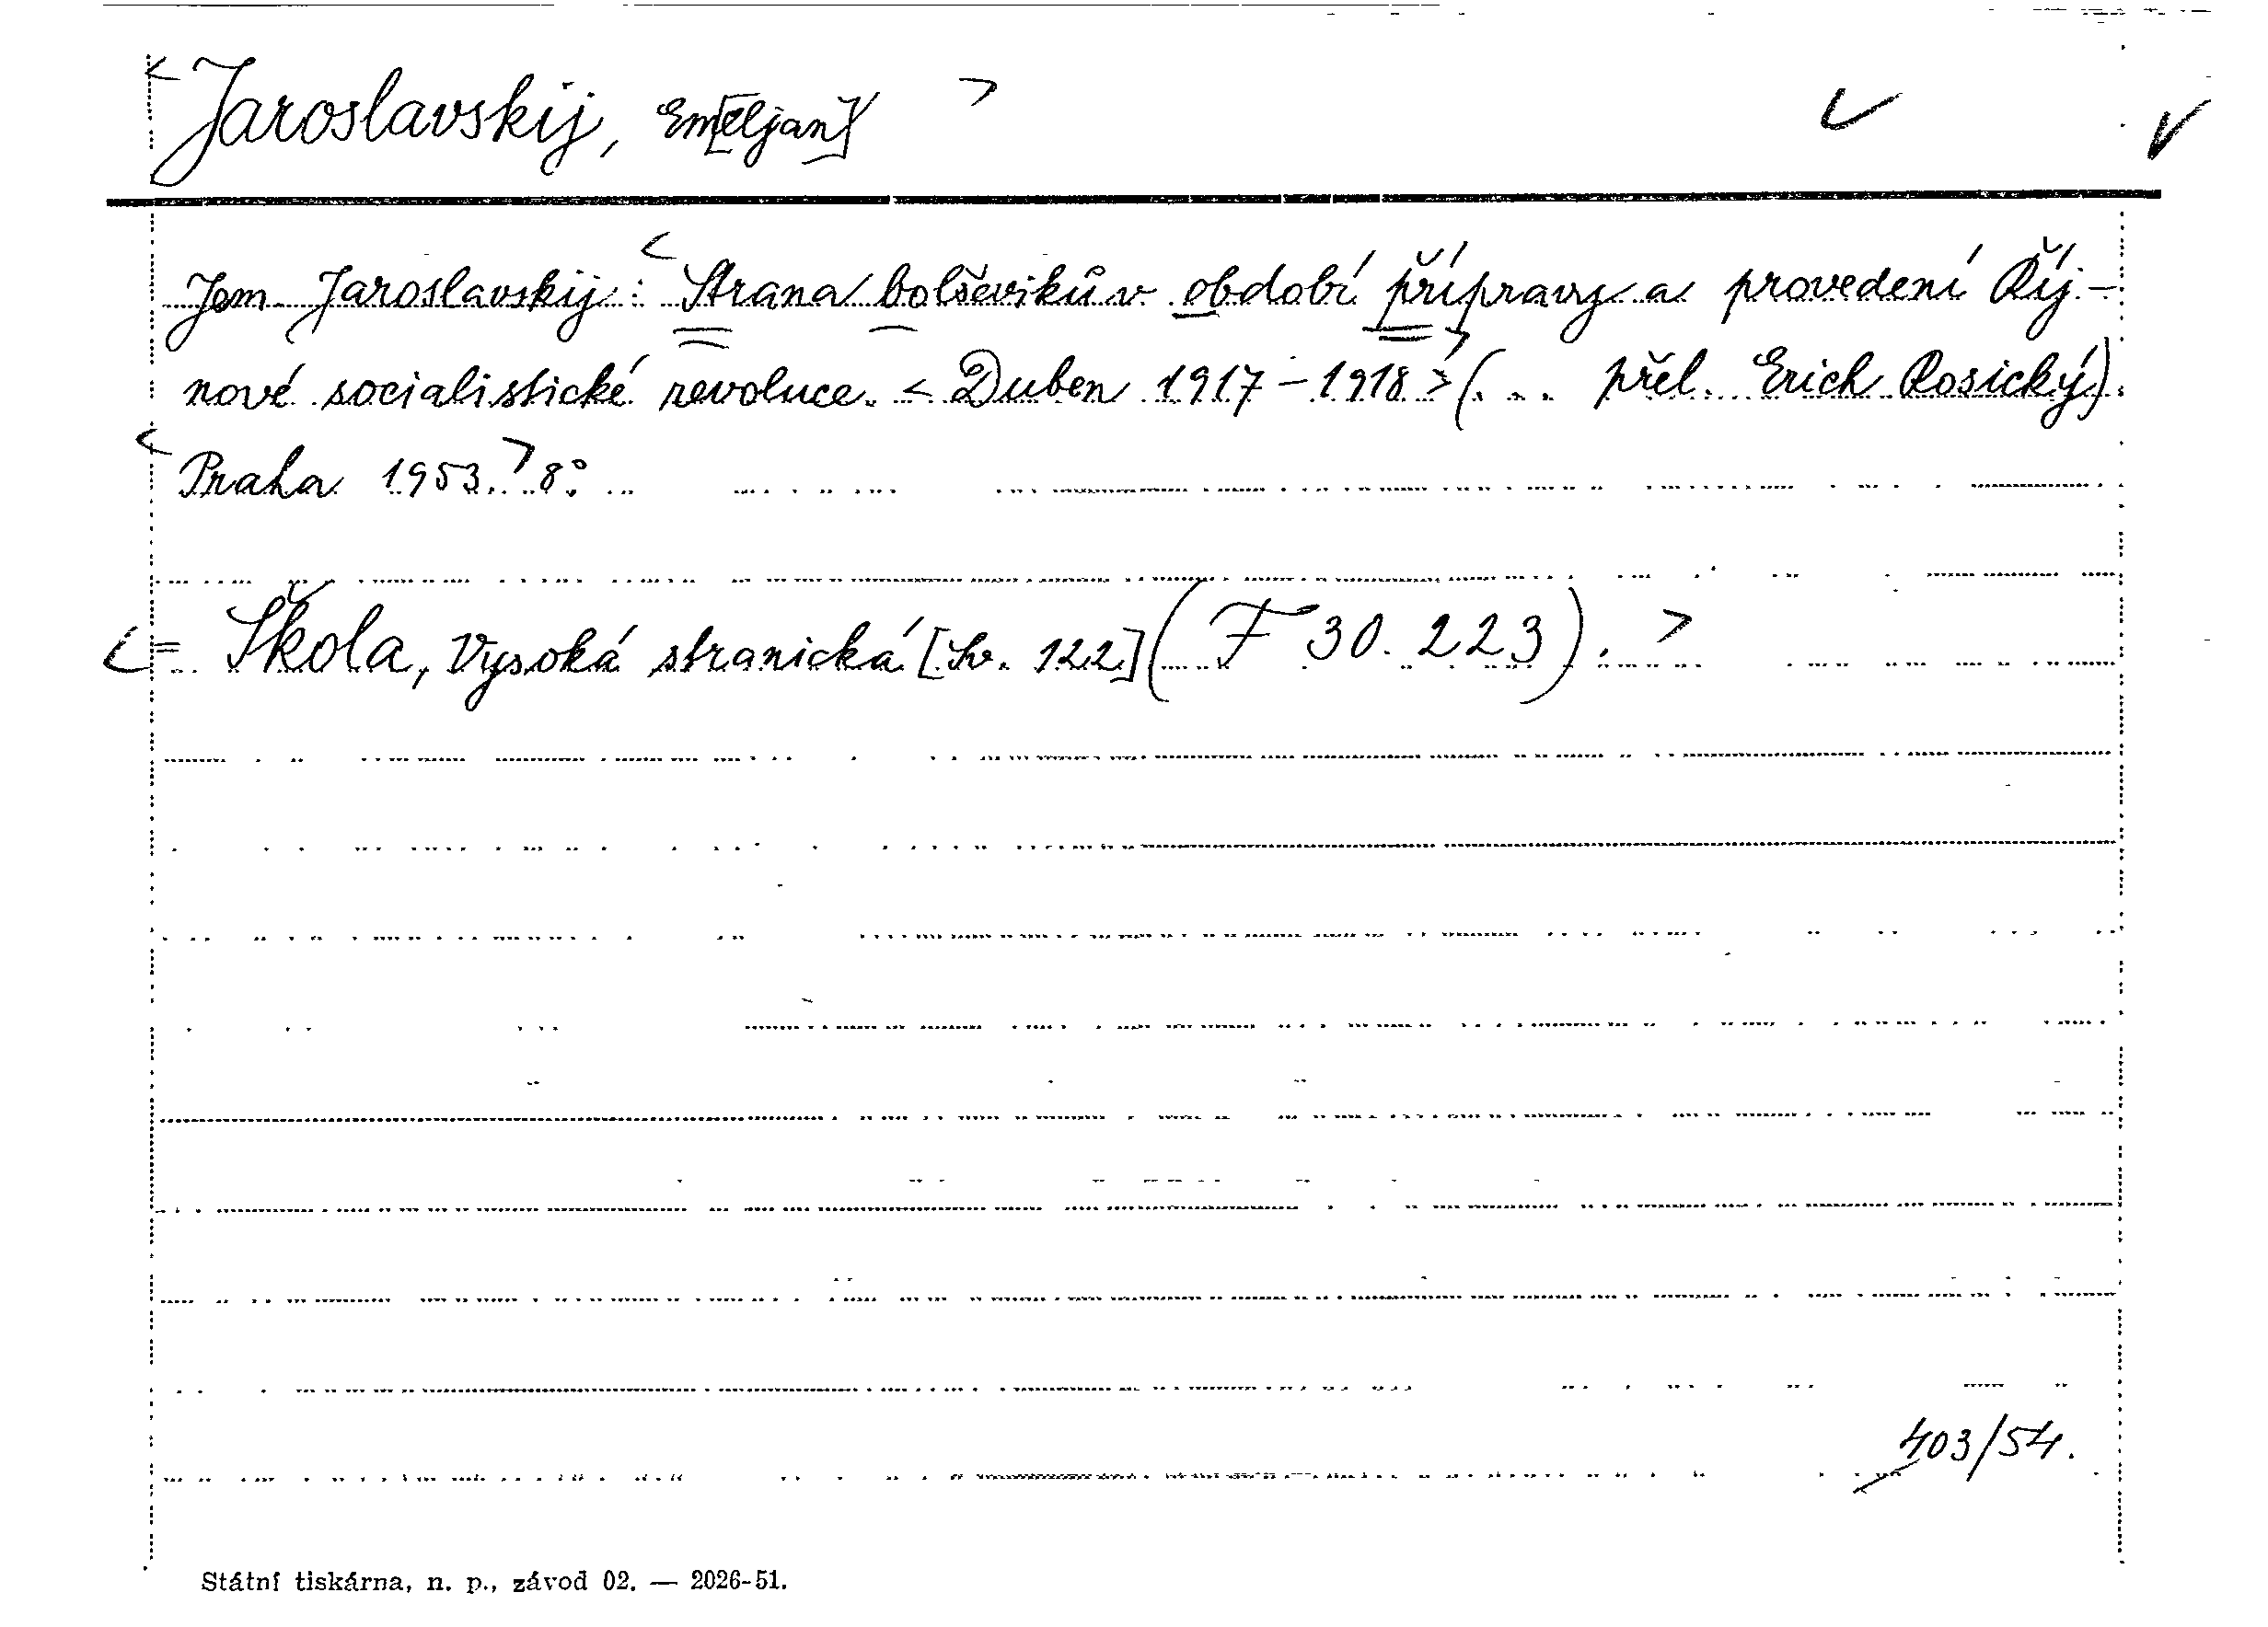 <Jaroslavskij, Em[eljan]>
Jem. Jaroslavskij: <Strana bolševiků v období přípravy a provedení Říj-
nové socialistické revoluce.> <Duben 1917-1918> (... přel. Erich Rosický).
<Praha 1953.> 8°.
<= Škola, Vysoká stranická [Sv. 122] (F 30.223).>
403/54.
Státní tiskárna, n. p., závod 02. — 2026-51.